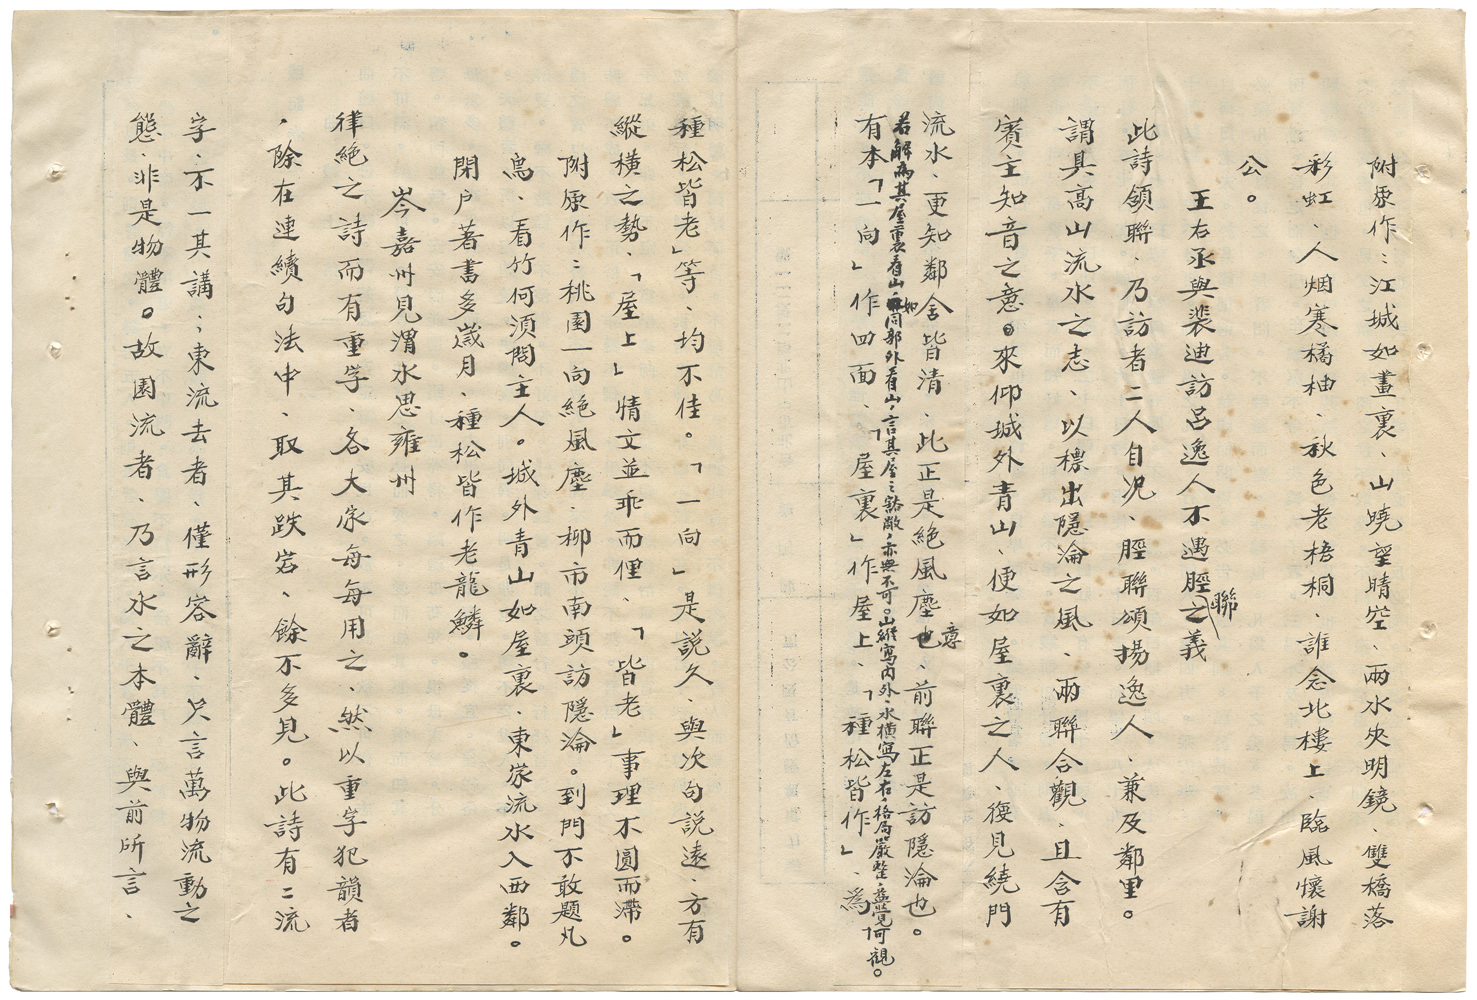 附原作：江城如畫裏、山曉望晴空、兩水夾明鏡、雙橋落
彩虹、人烟寒橘柚、秋色老梧桐、誰念北樓上、臨風懷謝
公。
王右丞與裴迪訪呂逸人不遇脛聯之義
此詩領聯、乃訪者二人自况、脛聯頌揚逸人、兼及鄰里。
謂具高山流水之志、以標出隱淪之風、兩聯合觀、且含有
賓主知音之意。來仰城外青山、便如屋裏之人、復見繞門
流水、更知鄰舍皆清、此正是絕風塵意也、前聯正是訪隱淪也。
若解為其屋裏看山、如同郭外看山，言其屋之豁敞，亦無不可。山縱寫內外，水橫寫左右，格局嚴整，益覺可觀。
有本「一向」作四面、「屋裏」作屋上、「種松皆作」、為「
種松皆老」等、均不佳。「一向」是說久、與次句說遠、方有
縱橫之勢、「屋上」情文並乖而俚、「皆老」事理不圓而滯。
附原作：桃園一向絕風塵、柳市南頭訪隱淪。到門不敢題凡
鳥、看竹何須問主人。城外青山如屋裏、東家流水入西鄰。
閉户著書多歲月、種松皆作老龍鱗。
岑嘉州見渭水思雍州
律絕之詩而有重字、各大家每每用之、然以重字犯韻者
、除在連續句法中、取其跌宕、餘不多見。此詩有二流
字、不一其講；東流去者、僅形容辭、只言萬物流動之
態、非是物體。故園流者、乃言水之本體、與前所言、